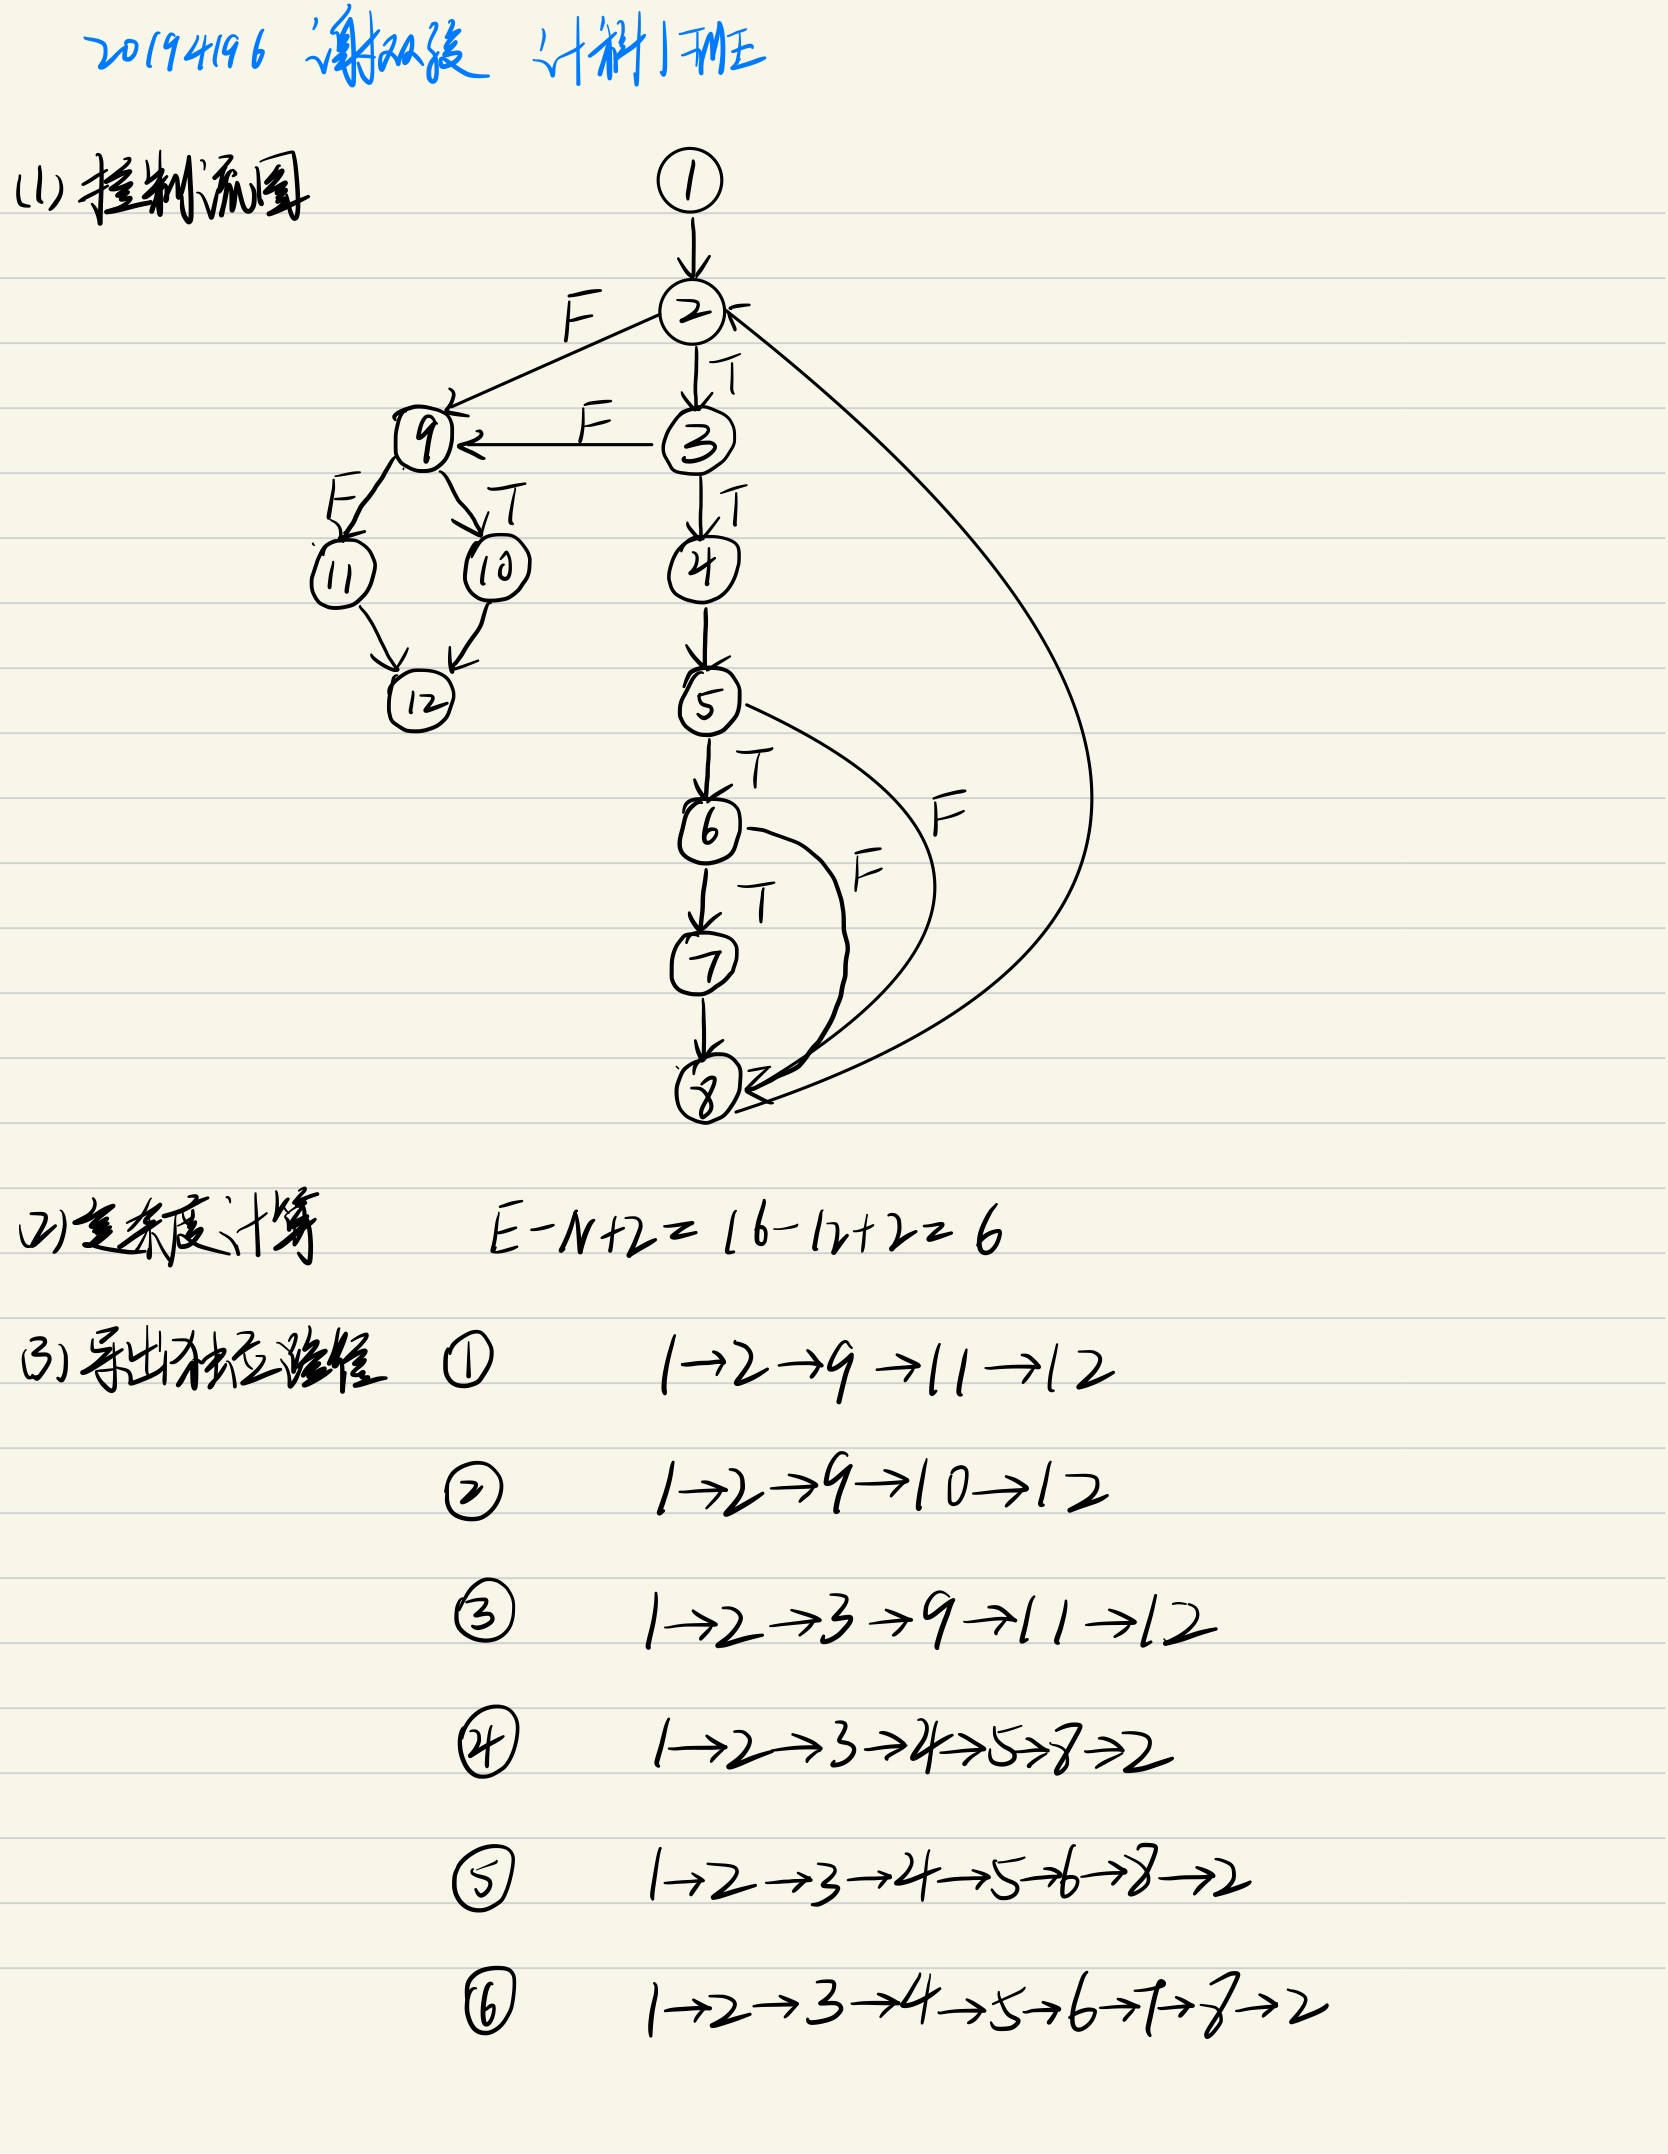 20194196 谢双骏 计科1班
(1) 控制流图
1
F 2
T
9 F 3
F T T
11 10 4
12 5
T
6 F
F
T
7
8
(2) 复杂度计算 E-N+2=16-12+2=6
(3) 导出独立路径 ① 1→2→9→11→12
② 1→2→9→10→12
③ 1→2→3→9→11→12
④ 1→2→3→4→5→8→2
⑤ 1→2→3→4→5→6→8→2
⑥ 1→2→3→4→5→6→7→8→2